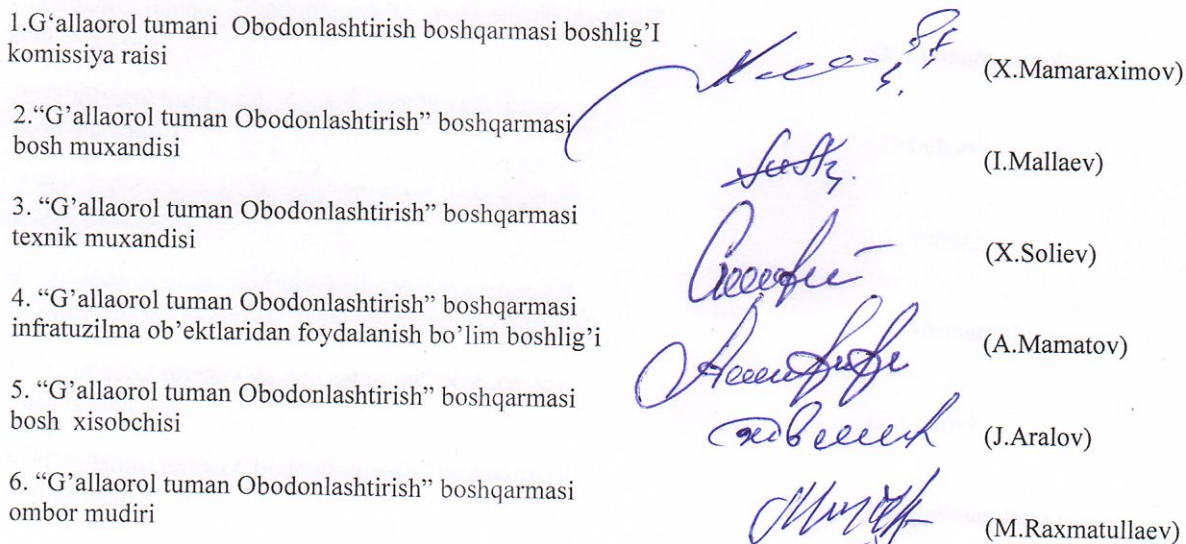 1.G‘allaorol tumani  Obodonlashtirish boshqarmasi boshlig’I
komissiya raisi
(X.Mamaraximov)
2.“G’allaorol tuman Obodonlashtirish” boshqarmasi
bosh muxandisi
(I.Mallaev)
3. “G’allaorol tuman Obodonlashtirish” boshqarmasi
texnik muxandisi
(X.Soliev)
4. “G’allaorol tuman Obodonlashtirish” boshqarmasi
infratuzilma ob’ektlaridan foydalanish bo’lim boshlig’i
(A.Mamatov)
5. “G’allaorol tuman Obodonlashtirish” boshqarmasi
bosh  xisobchisi
(J.Aralov)
6. “G’allaorol tuman Obodonlashtirish” boshqarmasi
ombor mudiri
(M.Raxmatullaev)